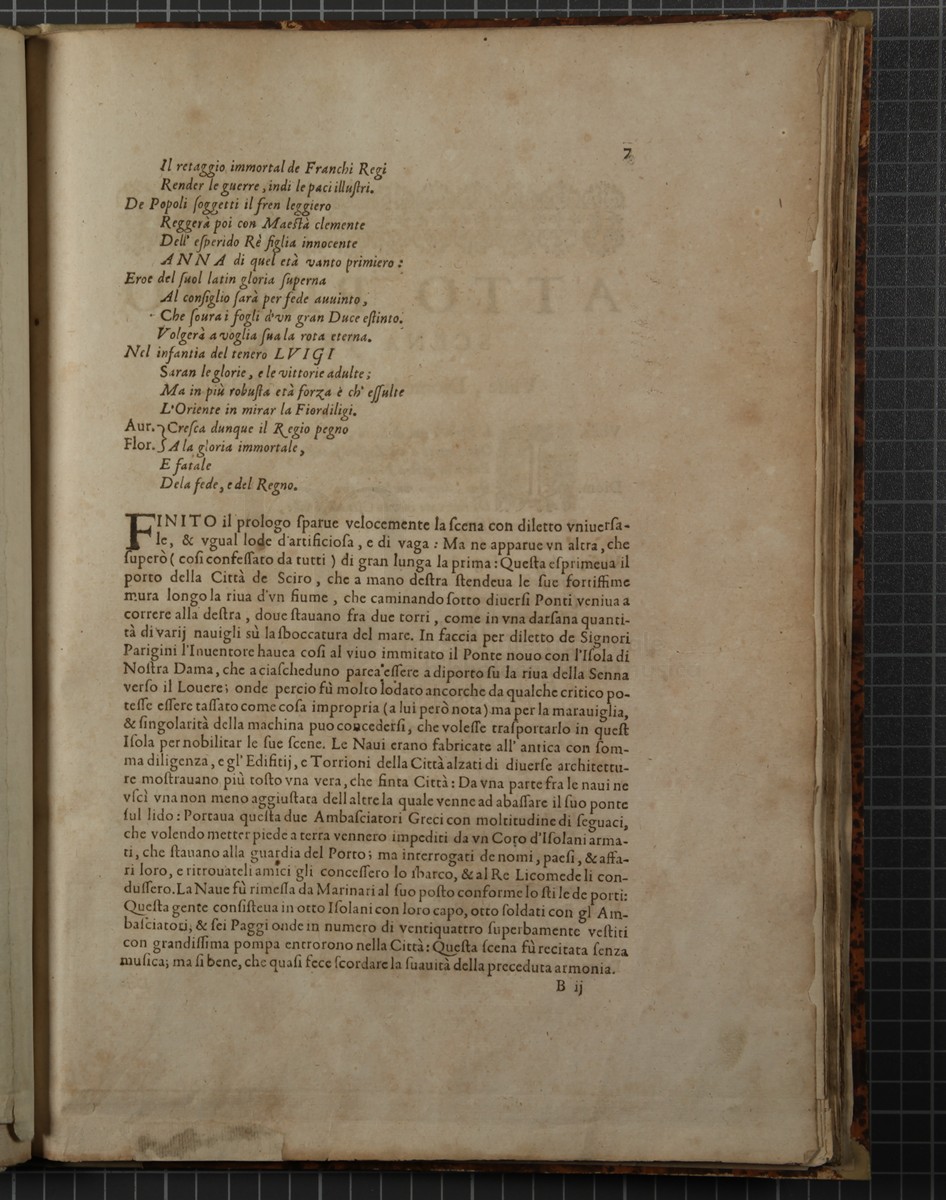 7
Il retaggio immortal de Franchi Regi
Render le guerre, indi le paci illuſtri.
De Popoli ſoggetti il fren leggiero
Reggerà poi con Maeſtà clemente
Dell' eſperido Rè figlia innocente
ANNA di quel età vanto primiero:
Eroe del ſuol latin gloria ſuperna
Al conſiglio ſarà per fede auuinto,
Che ſoura i fogli d'vn gran Duce eſtinto.
Volgerà a voglia ſua la rota eterna.
Nel infantia del tenero LVIGI
Saran le glorie, e le vittorie adulte;
Ma in più robuſta età forza è ch' eſſulte
L'Oriente in mirar la Fiordiligi.
Aur. Creſca dunque il Regio pegno
Flor. A la gloria immortale,
E fatale
Dela fede, e del Regno.
FINITO il prologo ſparue velocemente la ſcena con diletto vniuerſa-
le, & vgual lode d'artificioſa, e di vaga: Ma ne apparue vn altra, che
ſuperò (coſi confeſſato da tutti) di gran lunga la prima: Queſta eſprimeua il
porto della Città de Sciro, che a mano deſtra ſtendeua le ſue fortiſſime
mura longo la riua d'vn fiume, che caminando ſotto diuerſi Ponti veniua a
correre alla deſtra, doue ſtauano fra due torri, come in vna darſana quanti-
tà di varij nauigli sù la sboccatura del mare. In faccia per diletto de Signori
Parigini l'Inuentore hauea coſi al viuo immitato il Ponte nouo con l'Iſola di
Noſtra Dama, che a ciaſcheduno parea eſſere a diporto ſu la riua della Senna
verſo il Louere; onde percio fù molto lodato ancorche da qualche critico po-
teſſe eſſere taſſato come coſa impropria (a lui però nota) ma per la marauiglia,
& ſingolarità della machina puo concederſi, che voleſſe traſportarlo in queſt
Iſola per nobilitar le ſue ſcene. Le Naui erano fabricate all' antica con ſom-
ma diligenza, e gl' Edifitij, e Torrioni della Città alzati di diuerſe architettu-
re moſtrauano più toſto vna vera, che finta Città: Da vna parte fra le naui ne
vſcì vna non meno aggiuſtata dell altre la quale venne ad abaſſare il ſuo ponte
ſul lido: Portaua queſta due Ambaſciatori Greci con moltitudine di ſeguaci,
che volendo metter piede a terra vennero impediti da vn Coro d'Iſolani arma-
ti, che ſtauano alla guardia del Porto; ma interrogati de nomi, paeſi, & affa-
ri loro, e ritrouateli amici gli conceſſero lo sbarco, & al Re Licomede li con-
duſſero. La Naue fù rimeſſa da Marinari al ſuo poſto conforme lo ſtile de porti:
Queſta gente conſiſteua in otto Iſolani con loro capo, otto ſoldati con gl Am-
baſciatori, & ſei Paggi onde in numero di ventiquattro ſuperbamente veſtiti
con grandiſſima pompa entrorono nella Città: Queſta ſcena fù recitata ſenza
muſica; ma ſi bene, che quaſi fece ſcordare la ſuauità della preceduta armonia.
B ij